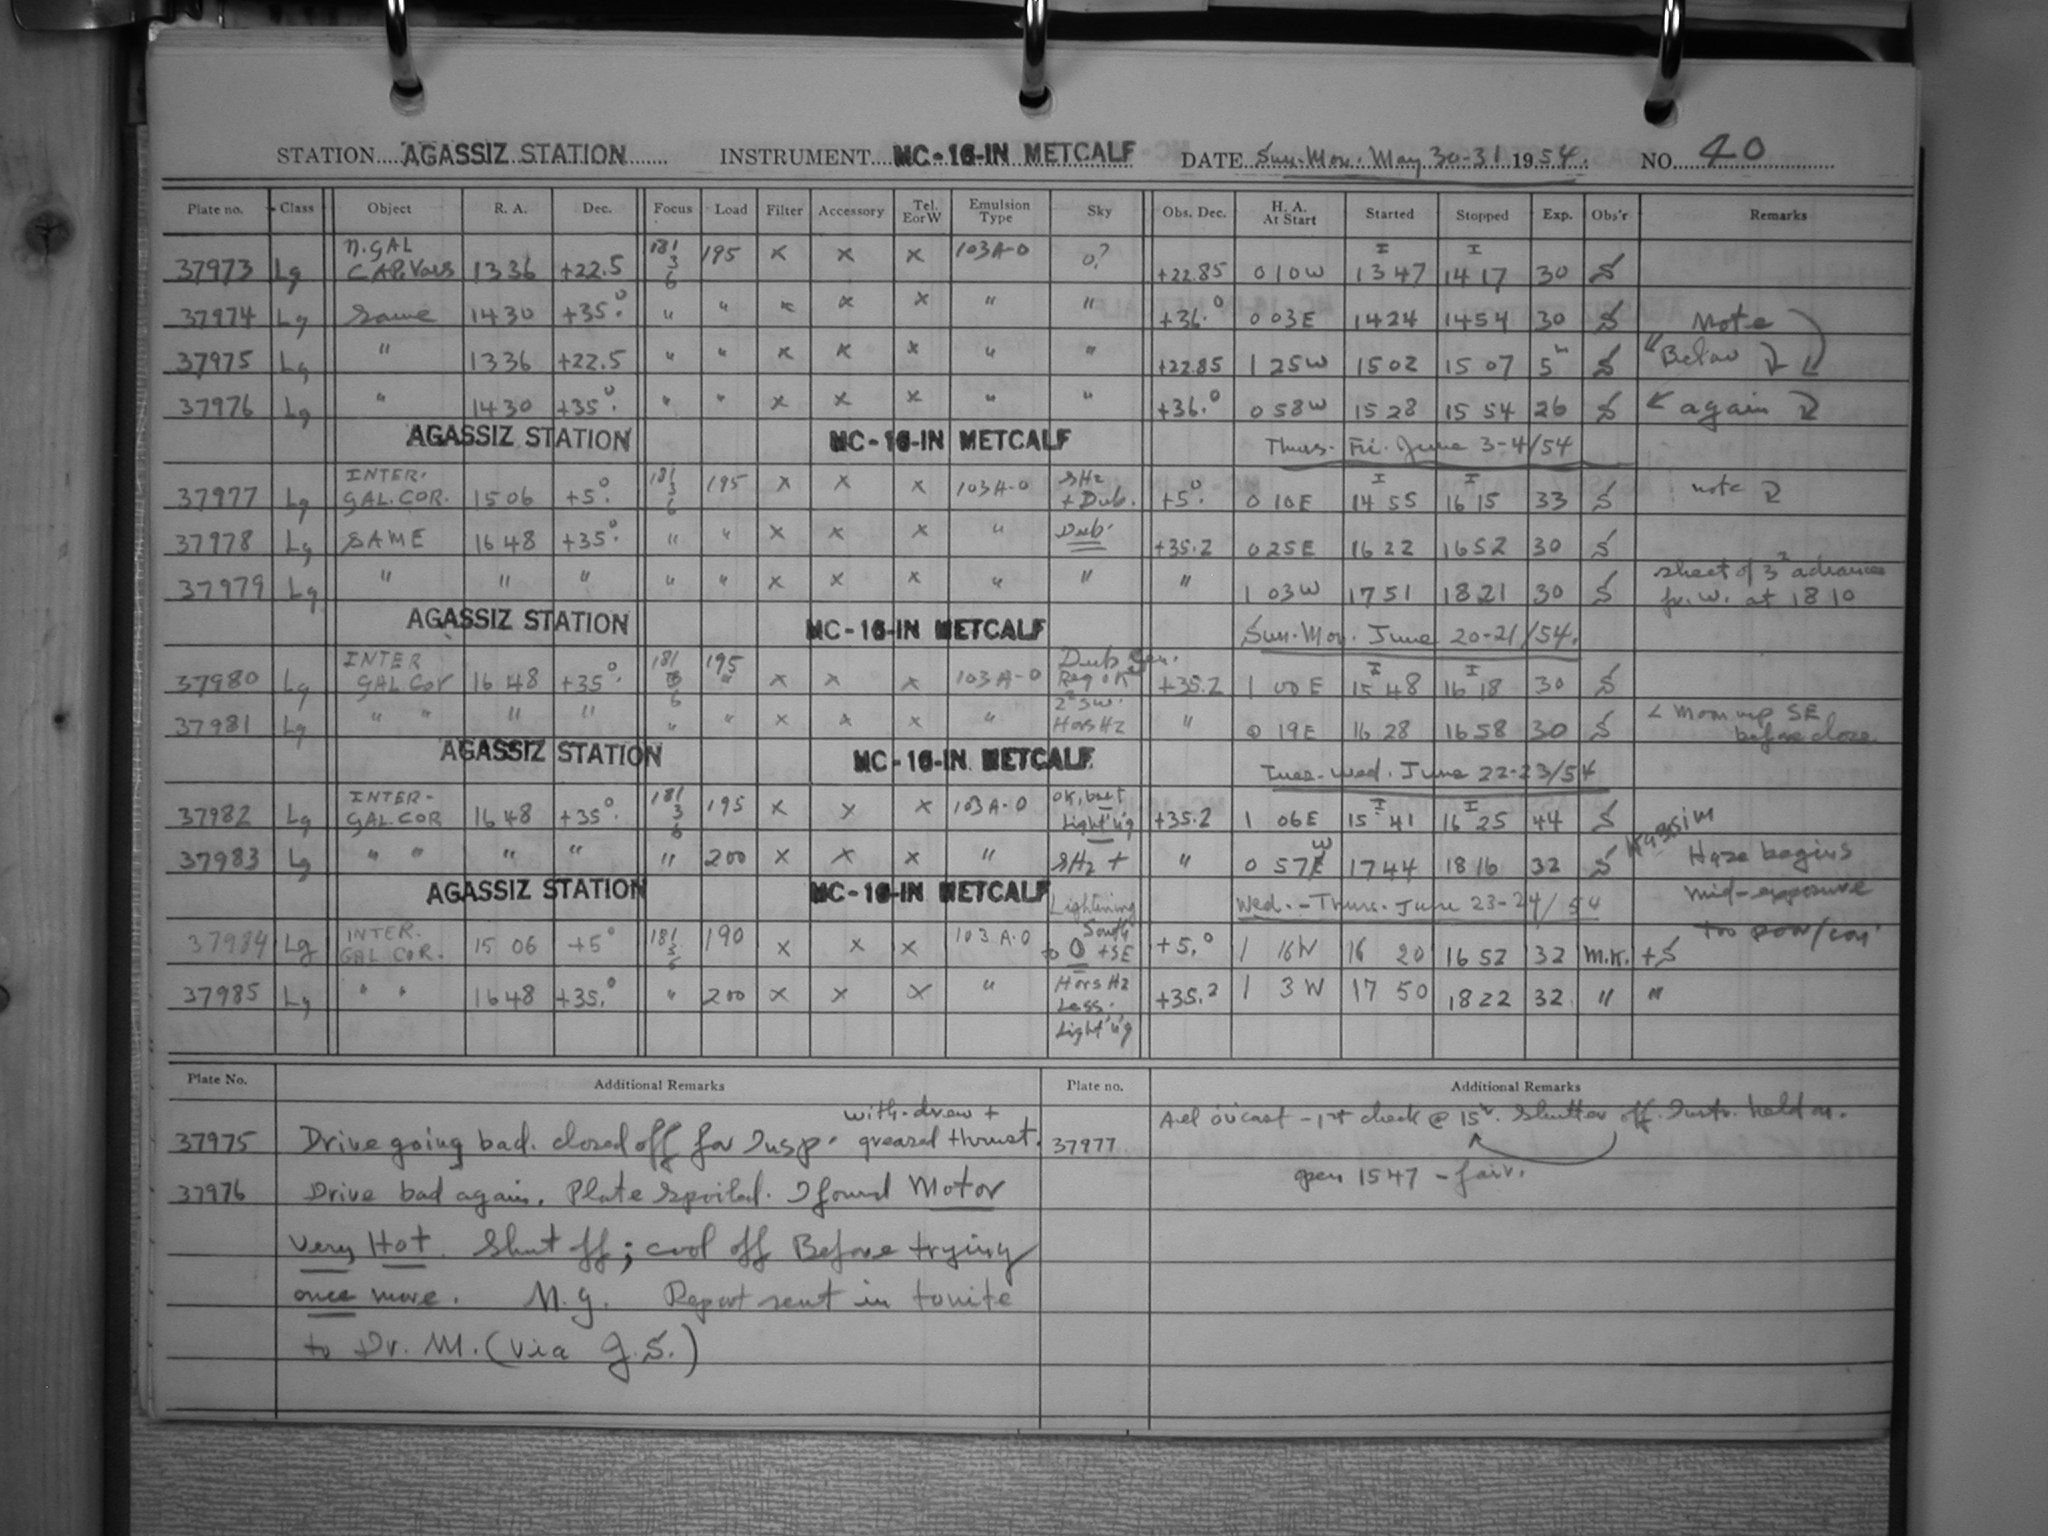 STATION AGASSIZ STATION INSTRUMENT MC-16-IN METCALF DATE Sun.-Mon. May 30-31 1954. NO. 40
Plate no. Class Object R. A. Dec. Focus Load Filter Accessory Tel. EorW Emulsion Type Sky Obs. Dec. H. A. At Start Started Stopped Exp. Obs'r Remarks
37973 Lg N. GAL CAP. Vars 13 36 +22.5 181 3 6 195 x x x 103A-O 0? +22.85 0 10W I 13 47 I 14 17 30 S
37974 Lg Same 14 30 +35.° " " x x x " " +36.° 0 03E 14 24 14 54 30 S Note
37975 Lg " 13 36 +22.5 " " x x x " " +22.85 1 25W 15 02 15 07 5m S " Below
37976 Lg " 14 30 +35.° " " x x x " " +36.° 0 58W 15 28 15 54 26 S again
AGASSIZ STATION MC-16-IN METCALF Thurs.-Fri. June 3-4/54
37977 Lg INTER. GAL. COR. 15 06 +5.° 181 3 6 195 x x x 103A-O SHz + Dub. +5.° 0 10E I 14 55 I 16 15 33 S note
37978 Lg SAME 16 48 +35.° " " x x x " Dub. +35.2 0 25E 16 22 16 52 30 S
37979 Lg " " " " " x x x " " " 1 03W 17 51 18 21 30 S sheet of advances fr. W. at 18 10
AGASSIZ STATION MC-16-IN METCALF Sun.-Mon. June 20-21/54.
37980 Lg INTER GAL. Cor 16 48 +35.° 181 3 6 195 " x x x 103A-O Dub Gen. Reg OK +35.2 1 00 E I 15 48 I 16 18 30 S
37981 Lg " " " " " " x x x " Hors Hz " 0 19E 16 28 16 58 30 S < Moon up SE before close
AGASSIZ STATION MC-16-IN METCALF Tues.-Wed. June 22-23/54
37982 Lg INTER- GAL. COR 16 48 +35.° 181 3 6 195 x x x 103A-O OK, but Light'ng +35.2 1 06E I 15 41 I 16 25 44 S
37983 Lg " " " " " 200 x x x " SHz + " 0 57W 17 44 18 16 32 S Kassim Haze begins
AGASSIZ STATION MC-16-IN METCALF Wed.-Thurs. June 23-24/54 mid-exposure
37984 Lg INTER. GAL. COR. 15 06 +5° 181 3 6 190 x x x 103A-O Lightning South to O +SE +5.° 1 16W 16 20 16 52 32 M.K. +S
37985 Lg " " 16 48 +35.° " 200 x x x " Hors Hz Less. Light'ng +35.2 1 3W 17 50 18 22 32 " "
Plate No. Additional Remarks Plate no. Additional Remarks
37975 Drive going bad. closed off for Insp. with-drew + greased thrust.
37976 Drive bad again. Plate spoiled. I found Motor
Very Hot. Shut off; cool off Before trying
once more. N.g. Report sent in tonite
to Dr. M. (via G.S.)
37977 All ov'cast - 1st check @ 15h. Shutter off. Instr. held on.
open 1547 - fair.